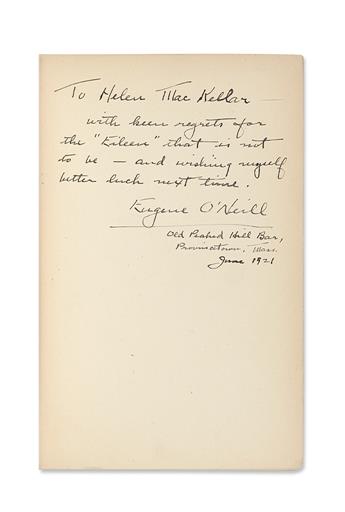 To Helen Mac Kellar —
with keen regrets for
the "Eileen" that is not
to be — and wishing myself
better luck next time.
Eugene O'Neill
Old Peaked Hill Bar,
Provincetown, Mass.
June 1921